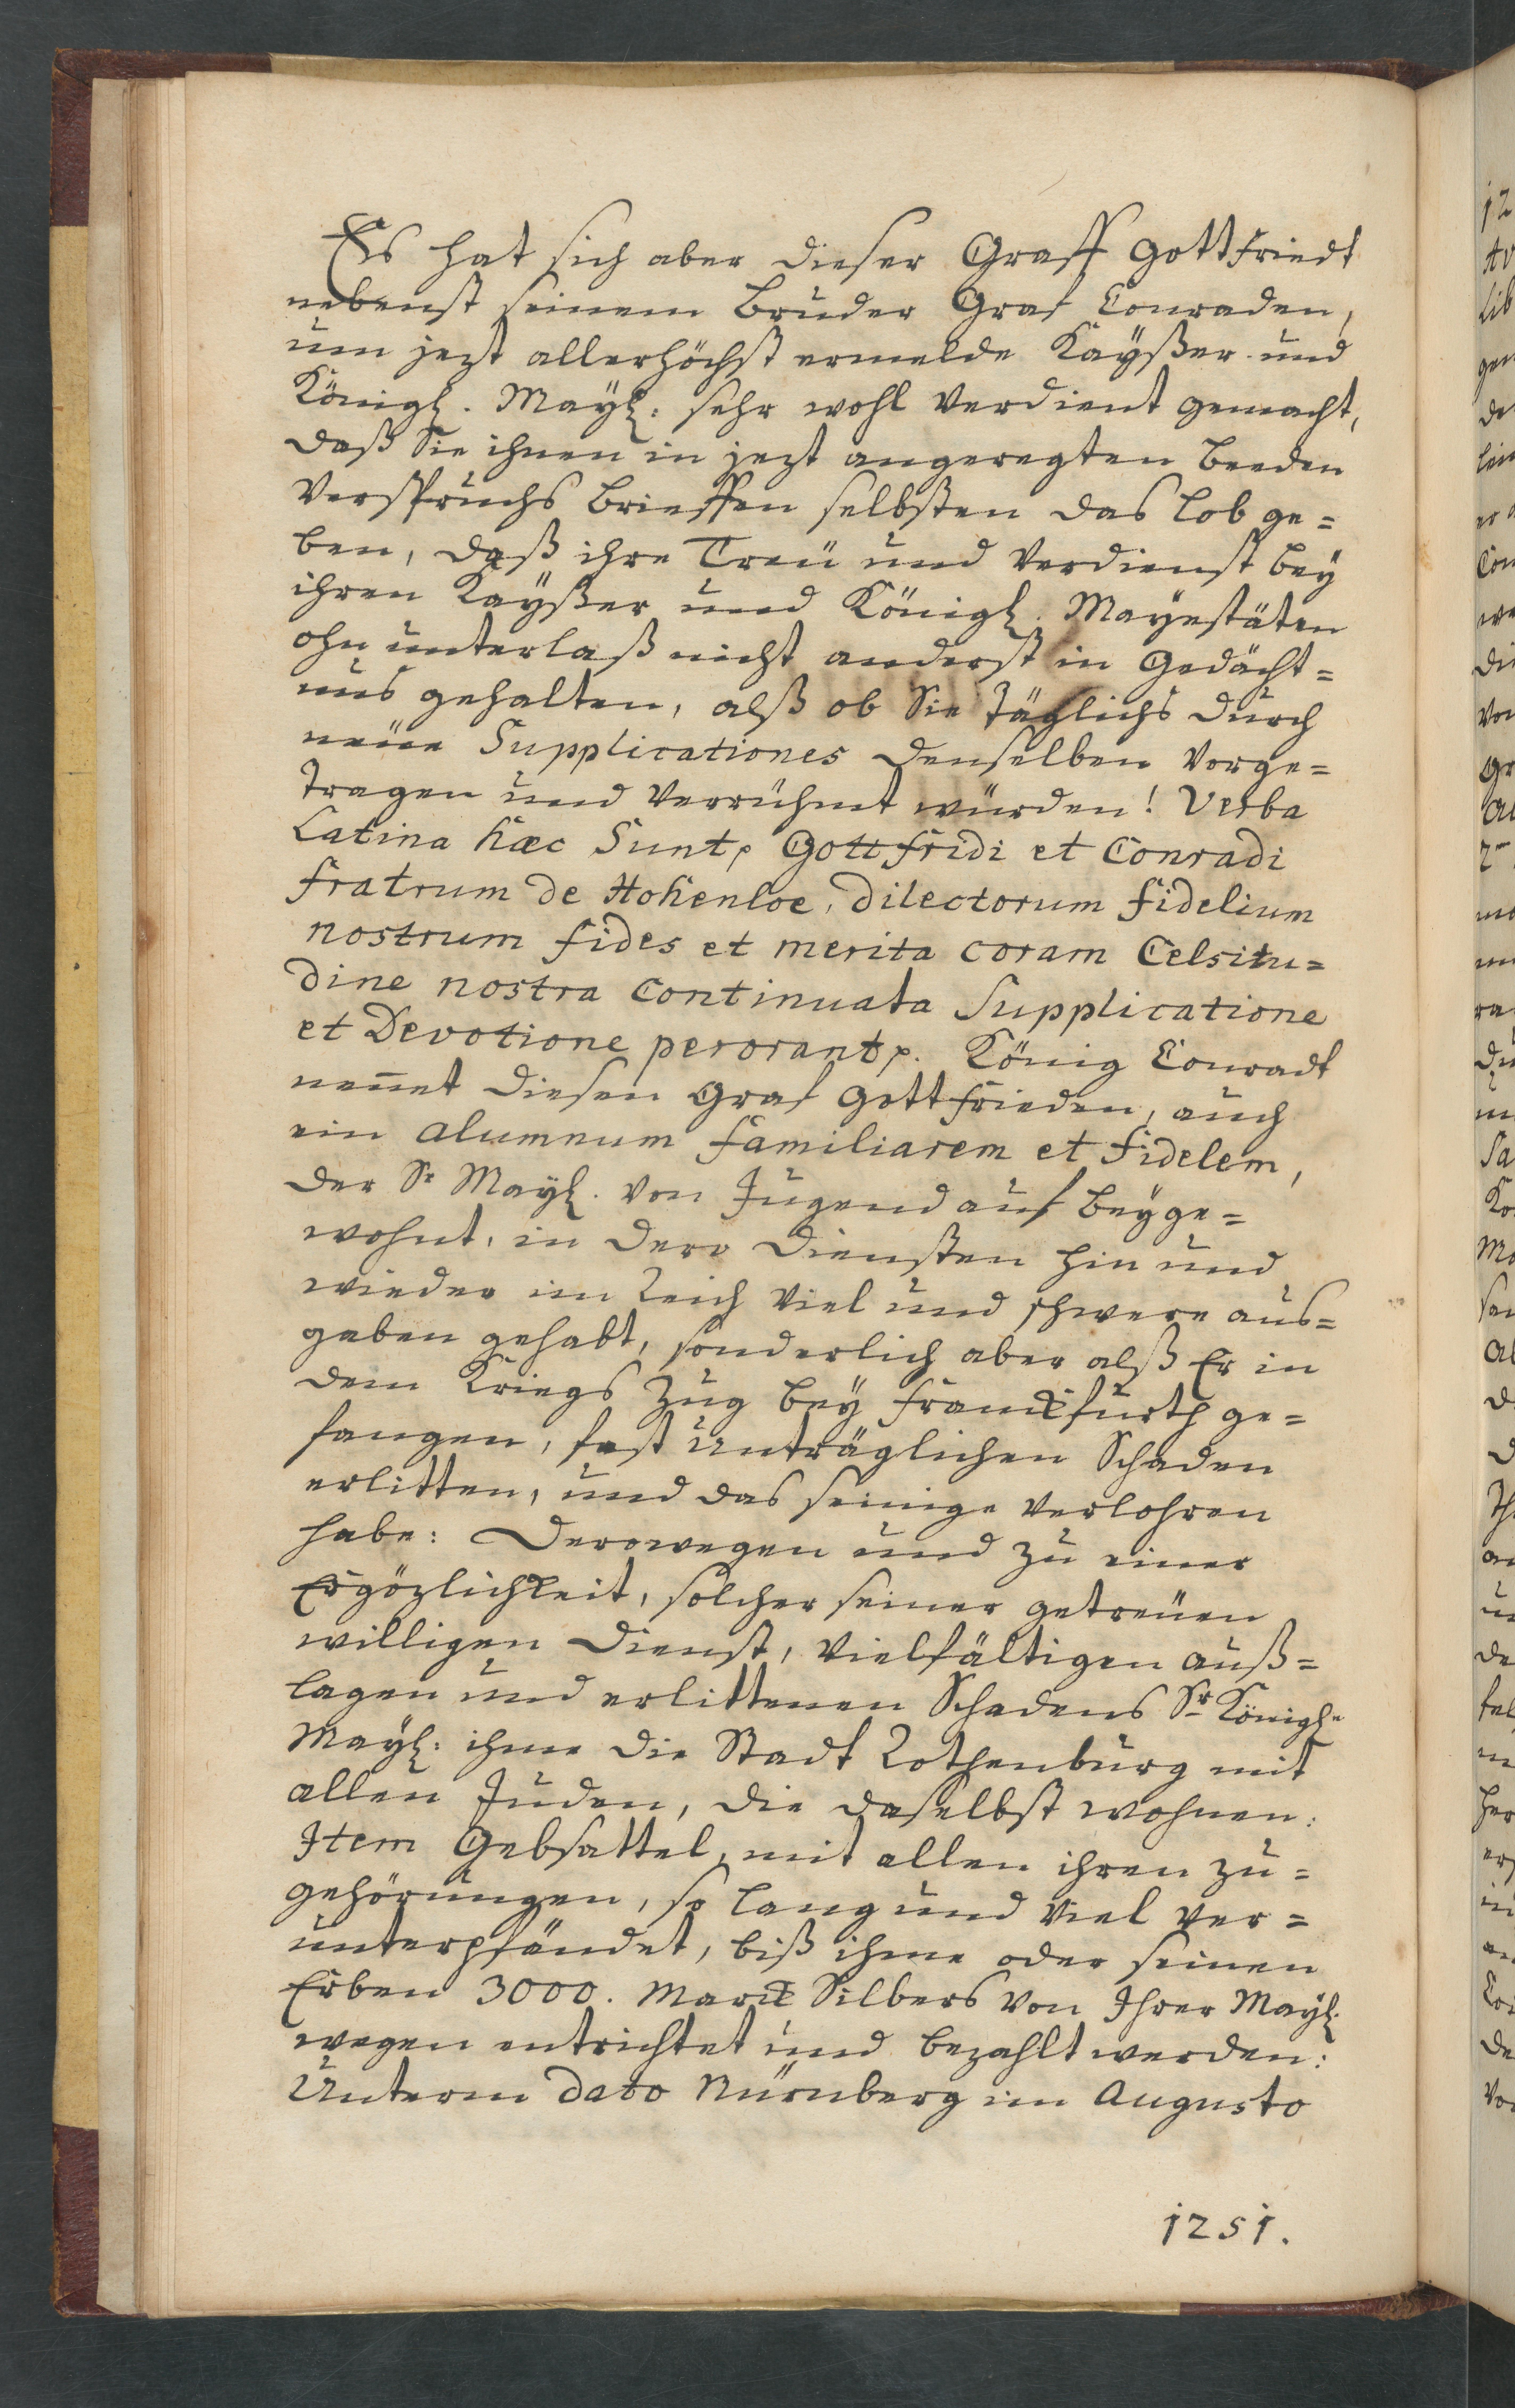 Es hat sich aber dieser Graff Gottfriedt
nebenst seinem Bruder Graf Conraden,
um jezt allerhöchst ermelde Kayßer und
Königl. Mayl: sehr wohl verdient gemacht,
daß Sie ihnen in jezt angeregten beeden
Verspruchs Brieffen selbsten das Lob ge=
ben, daß ihre Treü und Verdienst bey
ihren Kayßer und Königl. Mayestäten
ohn unterlaß nicht anderst in Gedächt=
nus gehalten, alß ob Sie täglichs durch
neüe Supplicationes denselben vorge=
tragen und verrühmt würden! Verba
Latina hæc Sunt, Gottfridi et Conradi
fratrum de Hohenloe, dilectorum fidelium
nostrum fides et merita coram Celsitu=
dine nostra Continuata Supplicatione
et Devotione perorant. König Conradt
nen̄et diesen Graf Gottfrieden, auch
ein alumnum familiarem et fidelem,
der Sr Mayl. von Jugend auf beyge=
wohnt, in dero Diensten hin und
wieder im Reich viel und schwere aus=
gaben gehabt, sonderlich aber alß Er in
dem Kriegs Zug bey Franckfurth ge=
fangen, fast unträglichen Schaden
erlitten, und das seinige verlohren
habe: Derowegen und zu einer
Ergözlichkeit, solcher seiner getreüen
willigen Dienst, vielfältigen auß=
lagen und erlittenen Schadens Sr Königl.
Mayl: ihme die Stadt Rothenburg mit
allen Juden, die daselbst wohnen:
Item Gebsattel, mit allen ihren zu=
gehörungen, so lang und viel ver=
unterpfändet, biß ihme oder seinen
Erben 3000. Marck Silbers von Ihrer Mayl.
wegen entrichtet und bezahlt werden:
Unterm dato Nürnberg im Augusto
1251.